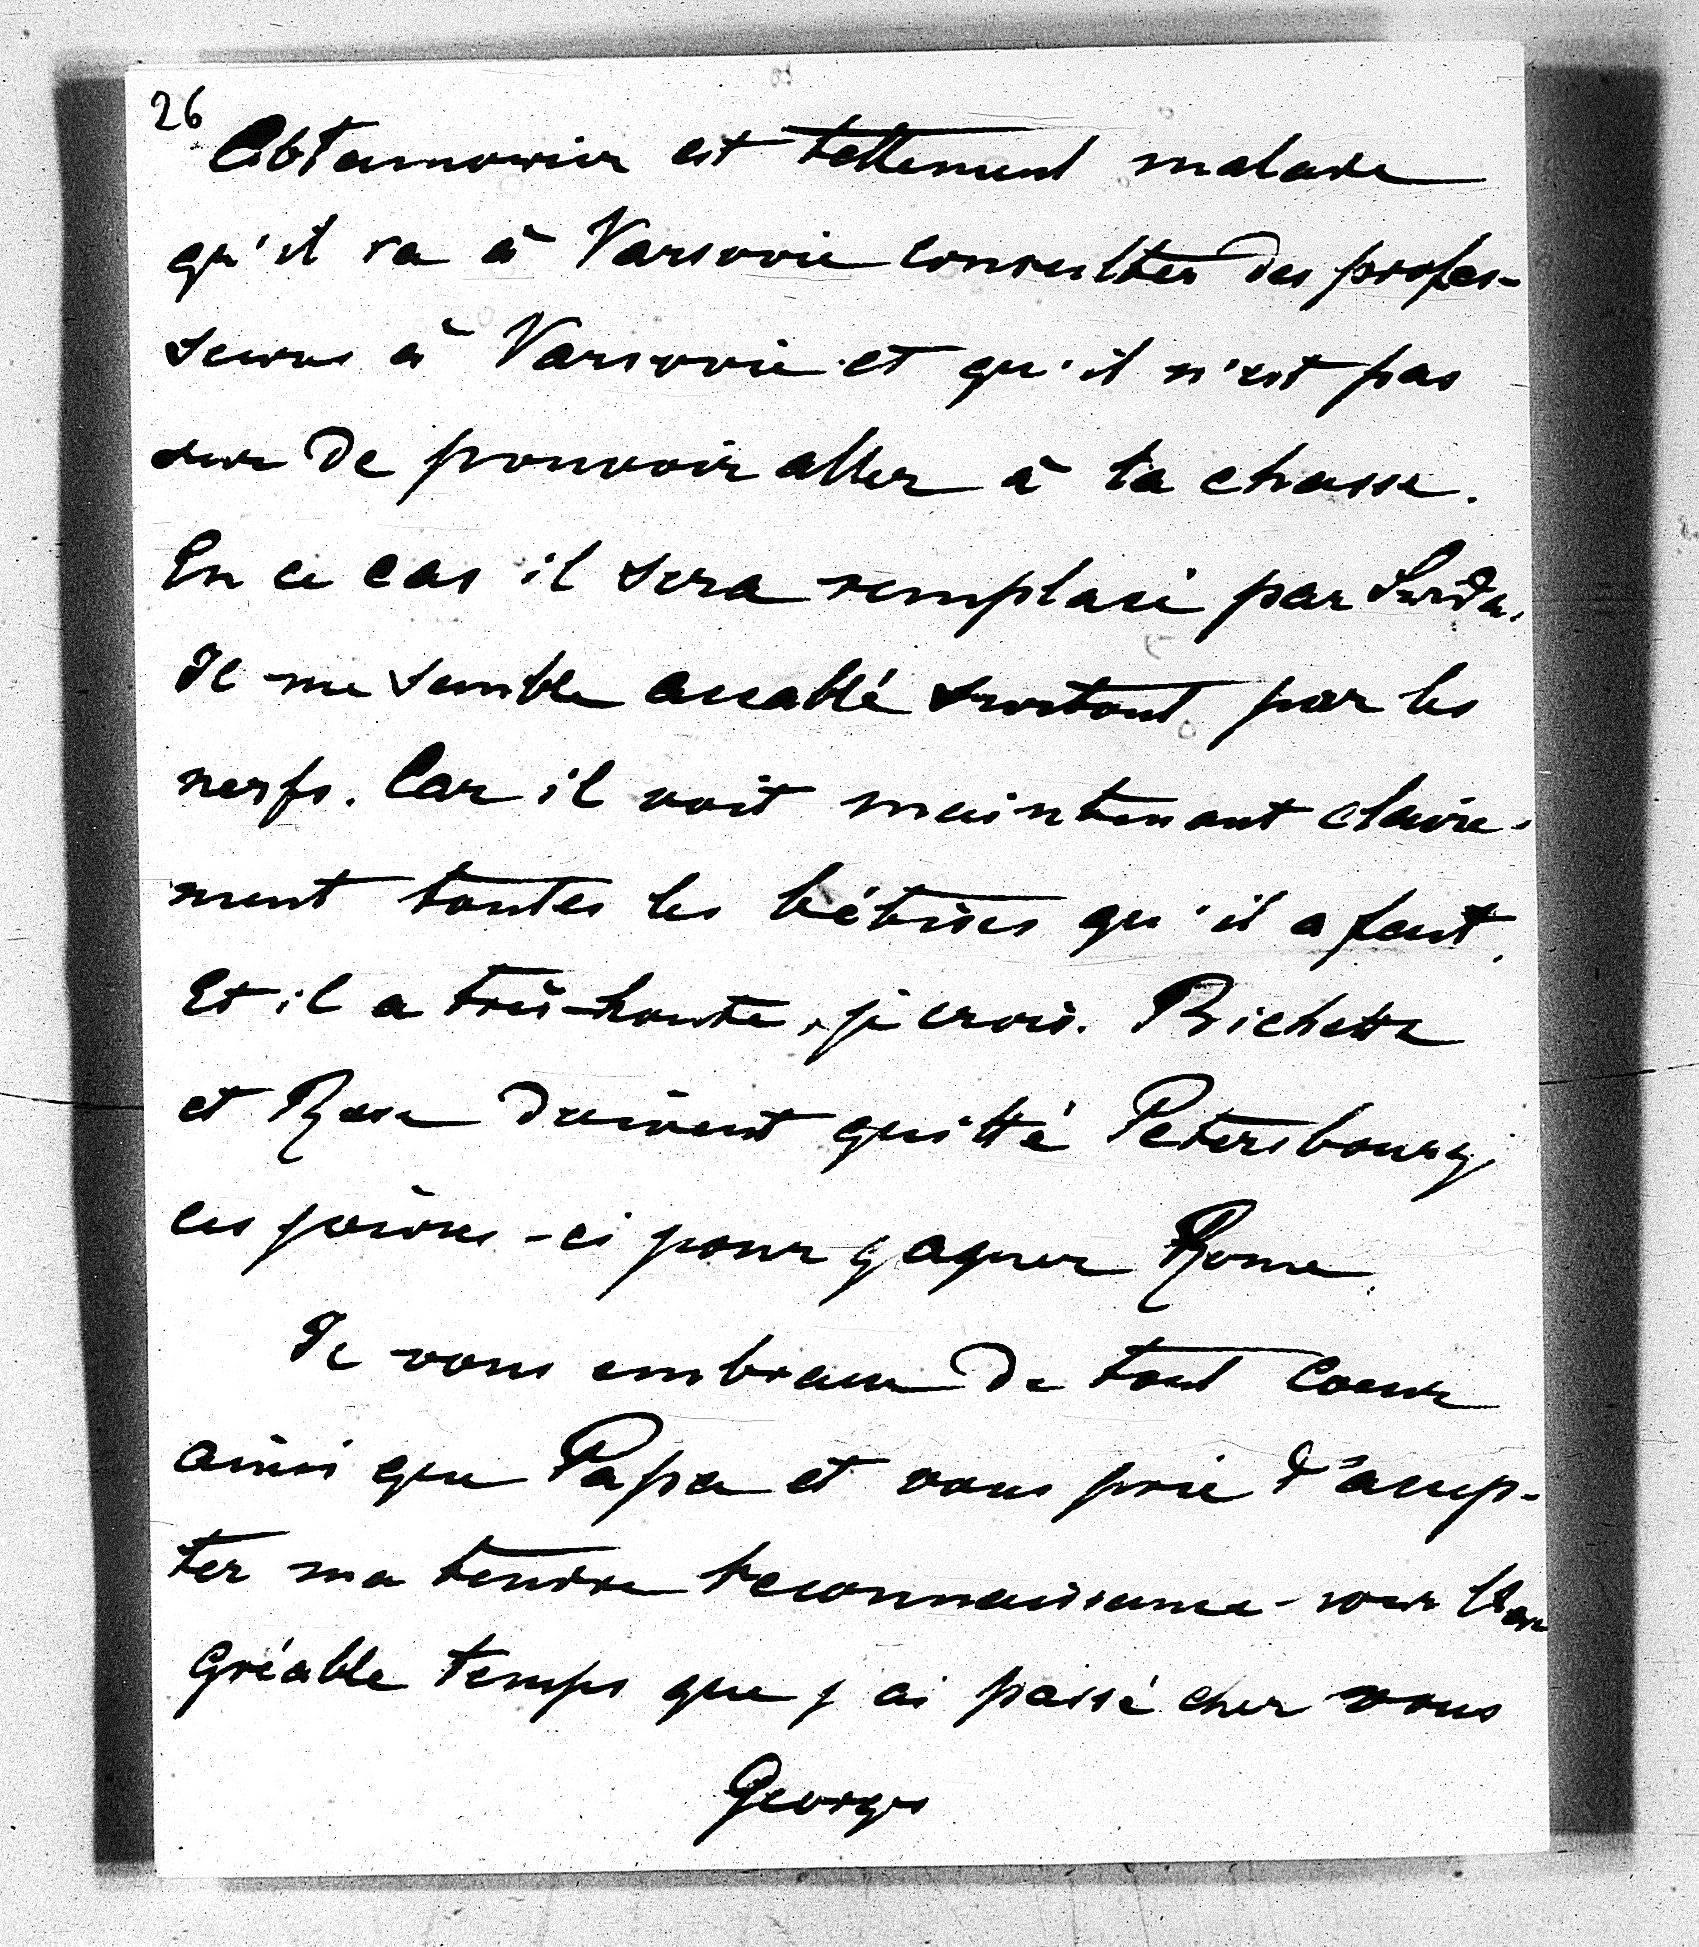 26
Abramowicz est tellement malade
qu'il va à Varsovie consulter des profes-
seurs à Varsovie et qu'il n'est pas
sur de pouvoir aller à ta chasse.
En ce cas il sera remplacé par
Il me semble accablé surtout par les
nerfs. Car il voit maintenant claire-
ment toutes les bétises qu'il a fait.
Et il a très-honte, je crois. Bichette
et Rose doivent quitté Petersbourg,
ces jours-ci pour gagner Rome.
Je vous embrasse de tout coeur
ainsi que Papa et vous prie d'accep-
ter ma tendre reconnaissance pour l'a
gréable temps que j'ai passé cher vous
Georges